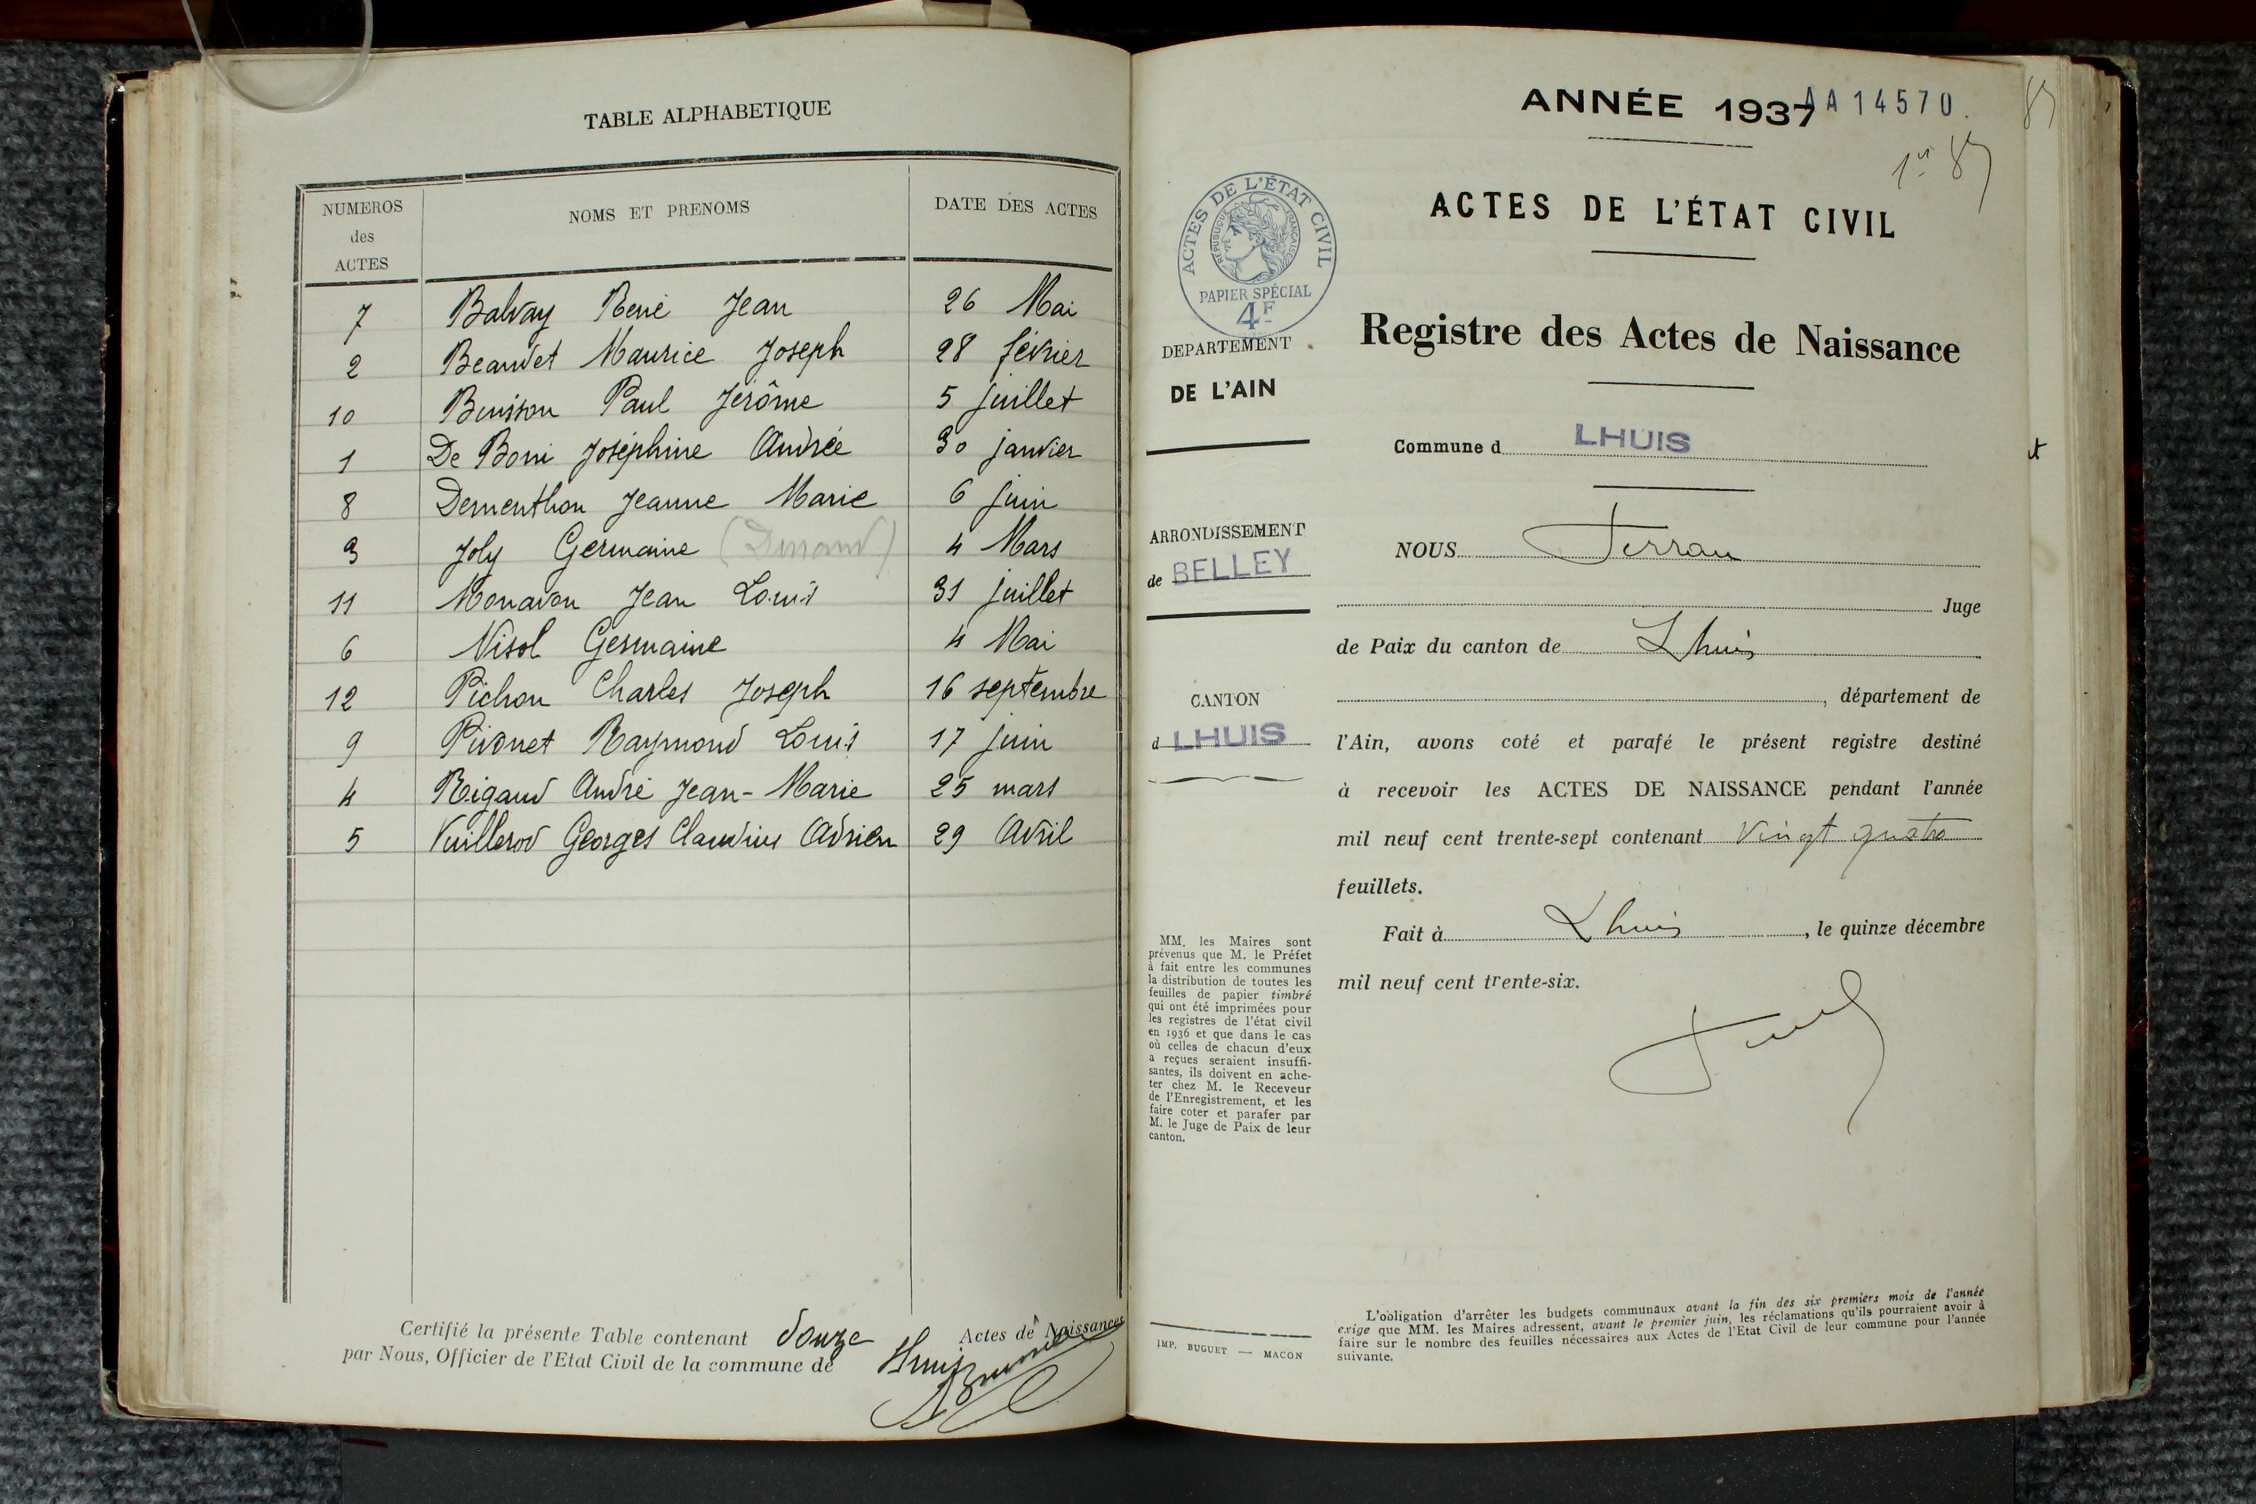 TABLE ALPHABETIQUE
NUMEROS
des
ACTES
NOMS ET PRENOMS
DATE DES ACTES
7 Balvay René Jean 26 Mai
2 Beaudet Maurice Joseph 28 février
10 Buisson Paul Jérôme 5 juillet
1 De Boni Joséphine Andrée 30 janvier
8 Dementhon Jeanne Marie 6 juin
3 Joly Germaine 4 Mars
11 Monavon Jean Louis 31 juillet
6 Nisol Germaine 4 Mai
12 Pichon Charles Joseph 16 septembre
9 Raymond Louis 17 juin
4 Rigaud André Jean-Marie 25 mars
5 Vuillerod Georges Claudius Adrien 29 Avril
Certifié la présente Table contenant douze Actes de Naissances
par Nous, Officier de l'Etat Civil de la commune de Lhuis
ANNÉE 1937
AA14570.
1er 87
87
ACTES DE L'ÉTAT CIVIL
Registre des Actes de Naissance
ACTES DE L'ÉTAT CIVIL
RÉPUBLIQUE FRANÇAISE
PAPIER SPÉCIAL
4F
DEPARTEMENT
DE L'AIN
ARRONDISSEMENT
de BELLEY
CANTON
d LHUIS
MM. les Maires sont
prévenus que M. le Préfet
à fait entre les communes
la distribution de toutes les
feuilles de papier timbré
qui ont été imprimées pour
les registres de l'état civil
en 1936 et que dans le cas
où celles de chacun d'eux
a reçues seraient insuffi-
santes, ils doivent en ache-
ter chez M. le Receveur
de l'Enregistrement, et les
faire coter et parafer par
M. le Juge de Paix de leur
canton.
IMP. BUGUET — MACON
Commune d LHUIS
NOUS Ferran
Juge
de Paix du canton de Lhuis
, département de
l'Ain, avons coté et parafé le présent registre destiné
à recevoir les ACTES DE NAISSANCE pendant l'année
mil neuf cent trente-sept contenant Vingt quatre
feuillets.
Fait à Lhuis, le quinze décembre
mil neuf cent trente-six.
L'obligation d'arrêter les budgets communaux avant la fin des six premiers mois de l'année
exige que MM. les Maires adressent, avant le premier juin, les réclamations qu'ils pourraient avoir à
faire sur le nombre des feuilles nécessaires aux Actes de l'Etat Civil de leur commune pour l'année
suivante.